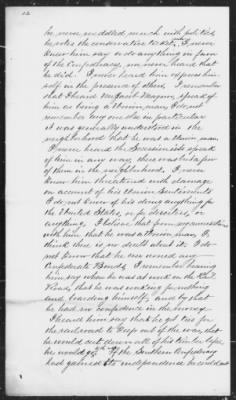 12
he never meddled much with politics,
he votes the conservative ticket, I never
knew him say or do anything in favor
of the Confederacy, nor never heard that
he did. I never heard him express him
self in the presence of others. I remember
that I heard speak of
him as being a Union man, I do not
remember any one else in particular
it was generally understood in the
neighborhood that he was a Union man.
I never heard the Secessionists speak
of him in any way, there was but a few
of them in the neighborhood. I never
knew him threatened with damage
on account of his Union Sentiments
I do not know of his doing anything for
the United States, or for Societies, or
anything. I believe, that from my conversations
with him that he was a Union man, I
think there is no doubt about it. I do
not know that he ever owned any
Confederate Bonds. I remember hearing
him say when he was at work on the Rail
Road, that he was working for nothing
and boarding himself, and by that
he had no confidence in the money.
I heard him say that he got into
the railroad to keep out of the war, that
he would cut down all of his timber before
he would go, If the Southern Confederacy
had gained its independence he would not